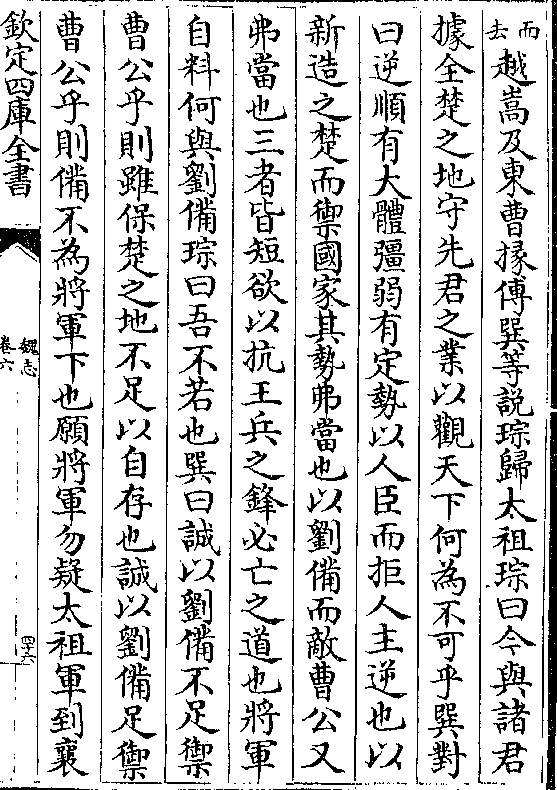 而去越嵩及東曹掾傅巽等説琮歸太祖琮曰今與諸君
據全楚之地守先君之業以觀天下何為不可乎巽對
曰逆順有大體彊弱有定勢以人臣而拒人主逆也以
新造之楚而禦國家其勢弗當也以劉備而敵曹公又
弗當也三者皆短欲以抗王兵之鋒必亡之道也將軍
自料何與劉備琮曰吾不若也巽曰誠以劉備不足禦
曹公乎則雖保楚之地不足以自存也誠以劉備足禦
曹公乎則備不為將軍下也願將軍勿疑太祖軍到襄
欽定四庫全書
魏志
卷六
四十六